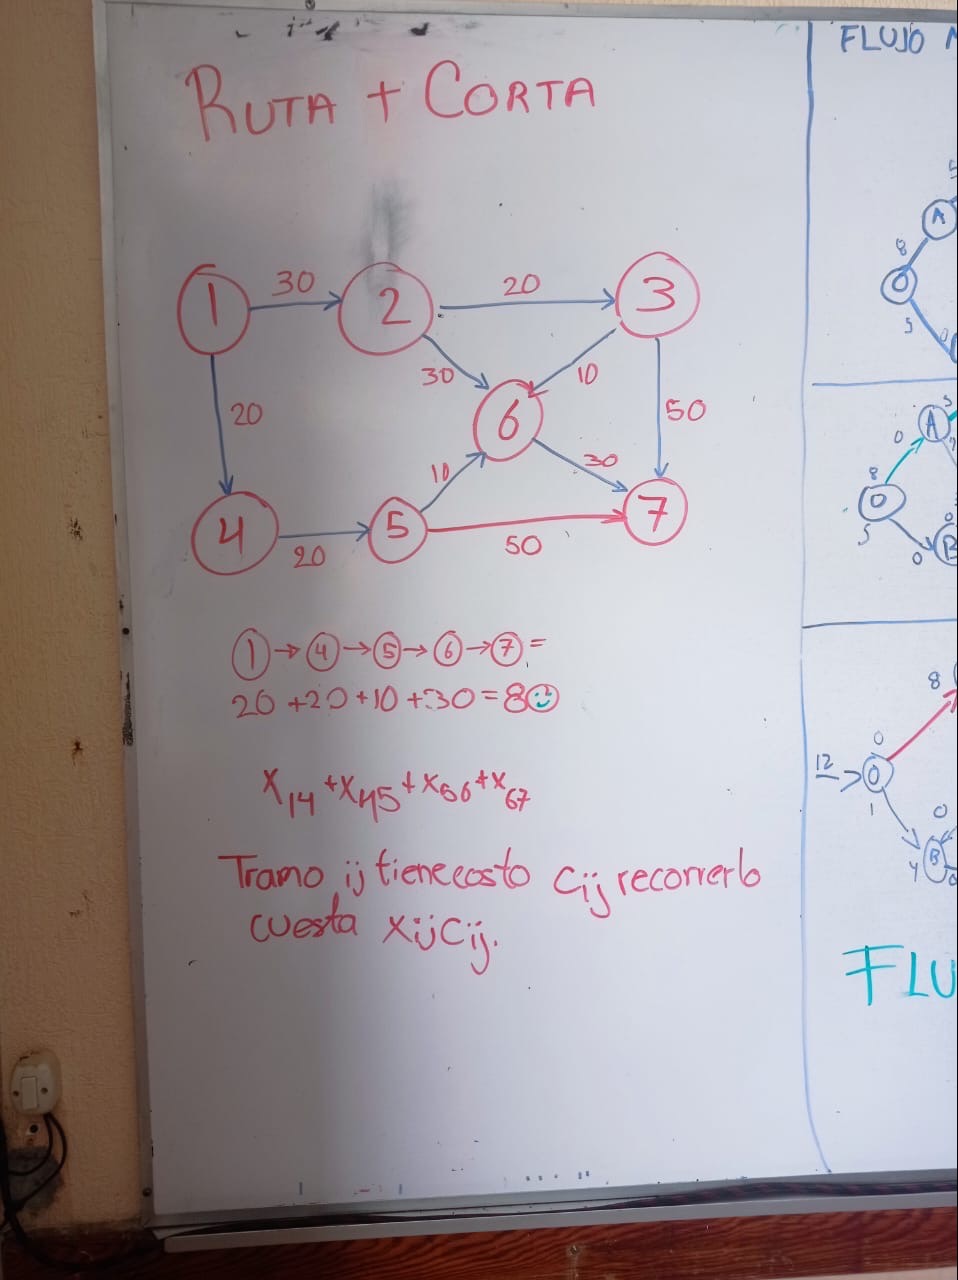 RUTA + CORTA
FLUJO
1 30 2 20 3
20 30 10 50
6
10 30
4 20 5 50 7
1 → 4 → 5 → 6 → 7 =
20 + 20 + 10 + 30 = 80
X14 + X45 + X56 + X67
Tramo ij tiene costo Cij recorrerlo
cuesta XijCij.
A
8
0
5
A
0
8
0
5
0
B
8
0
12
0
1
0
4
B
FLU